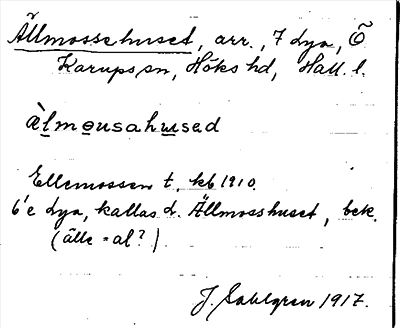 Ällmossehuset, arr., 7 dya, Ö
Karups sn, Höks hd, Hall. l.
àlmousahused
Ellemossen t. kb 1910.
6'e dya, kallas d. Ällmosshuset, bek.
(älle = al?)
J. Sahlgren 1917.